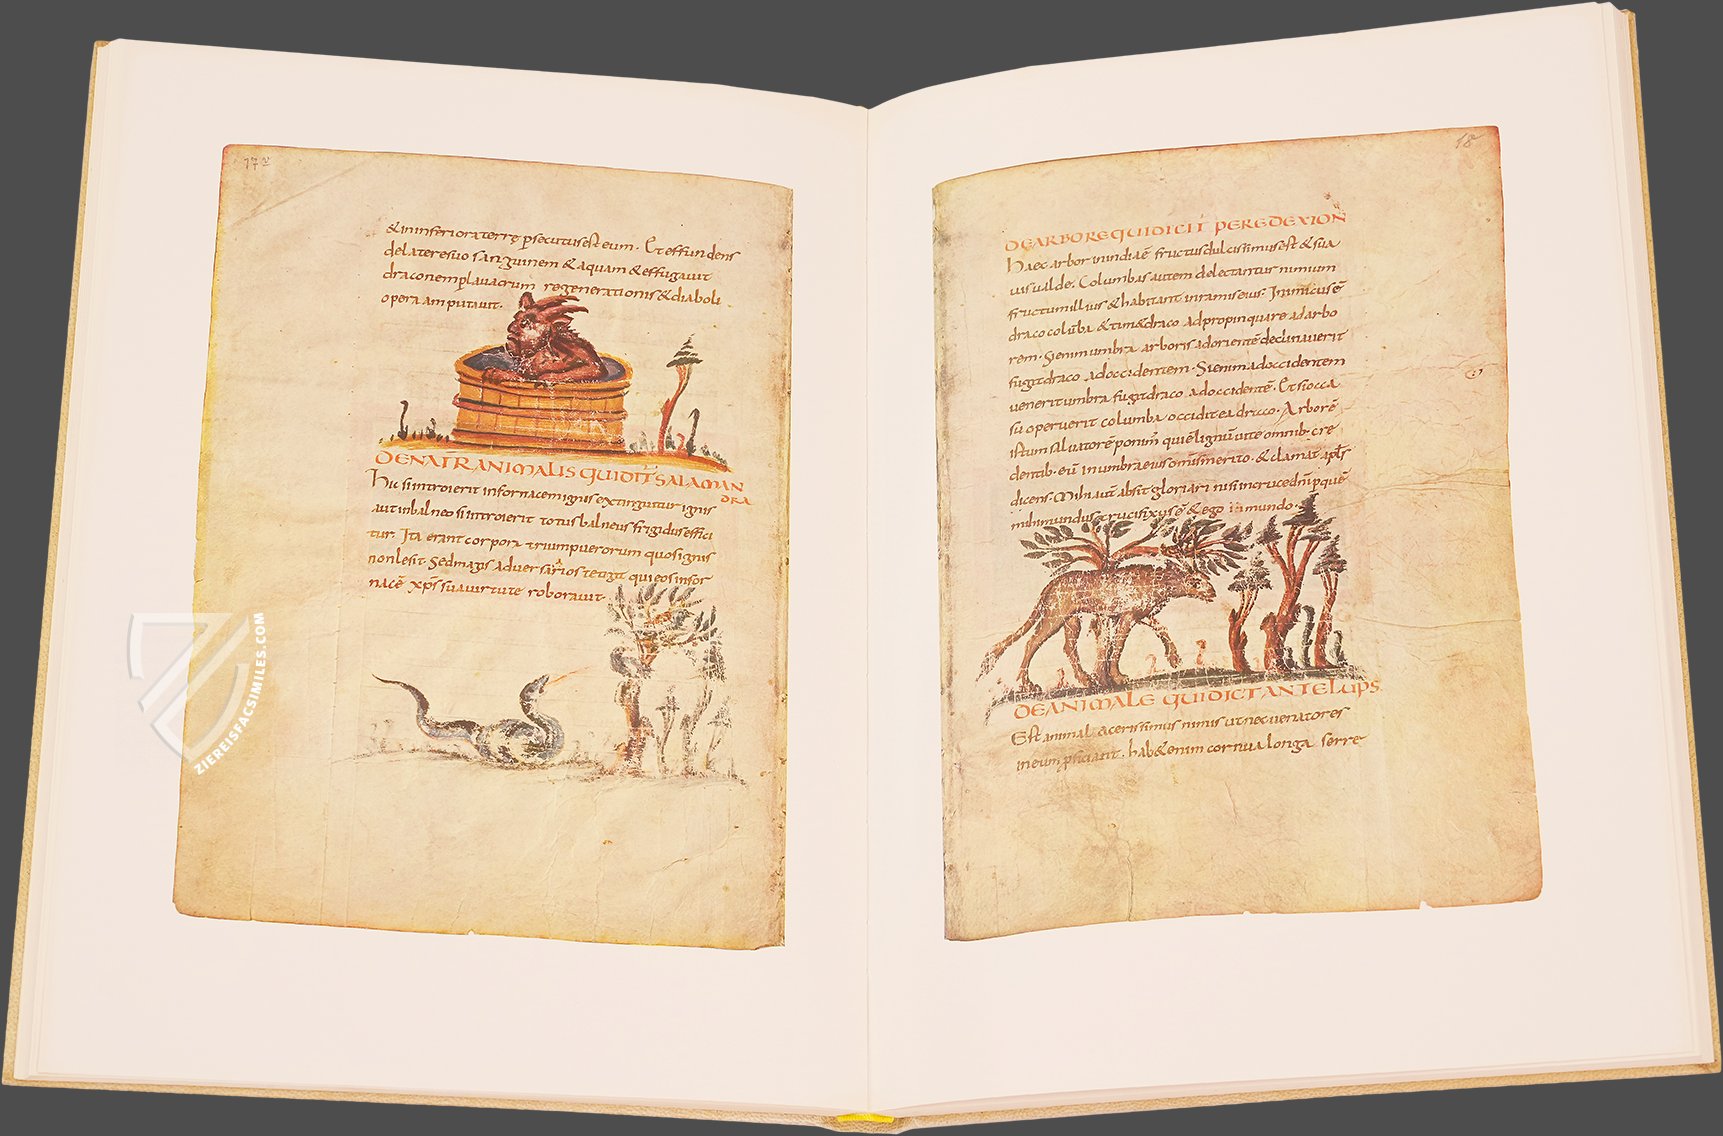 17v
& in inferiora terrę psecutus est eum. Et effundens
de latere suo sanguinem & aquam & effugauit
draconem p lauacrum regenerationis & diaboli
opera amputauit.
DE NATR ANIMALIS QUI DITR SALAMAN
DRA
Hic si introierit in fornacem ignis extinguitur ignis
aut in balneo si introierit totus balneus frigidus effici
tur. Ita erant corpora trium puerorum quos ignis
non lesit. Sed magis aduersarios tetigit qui eos in for
nacē xps sua uirtute roborauit.
18
ARBORE QUI DICIT PEREDEXION
Haec arbor in india ē fructus dulcissimus est & sua
uis ualde. Columbas autem delectantur nimium
fructum illius & habitant in ramis eius. Inimicus ē
draco colūba & tim& draco adpropinquare ad arbo
rem. Si enim umbra arboris ad orientē declinauerit
fugit draco ad occidentem. Si enim ad occidentem
uenerit umbra fugit draco ad occidentē. Et si occa
su operuerit columba occidit ea draco. Arborē
istum saluatorē ponim quiē lignū uite omnib. cre
dentib. eū in umbra eius omīs merito. & clamat apls
dicens. Mihi aut absit gloriari nisi in cruce dnī p quē
mihi mundus crucifixus ē & ego in mundo.
DE ANIMALE QUI DICT ANTELUPS
Est animal acerissimus nimis ut nec uenatores
in eum psiciant. hab& enim cornua longa serre
ZIEREISFACSIMILES.COM